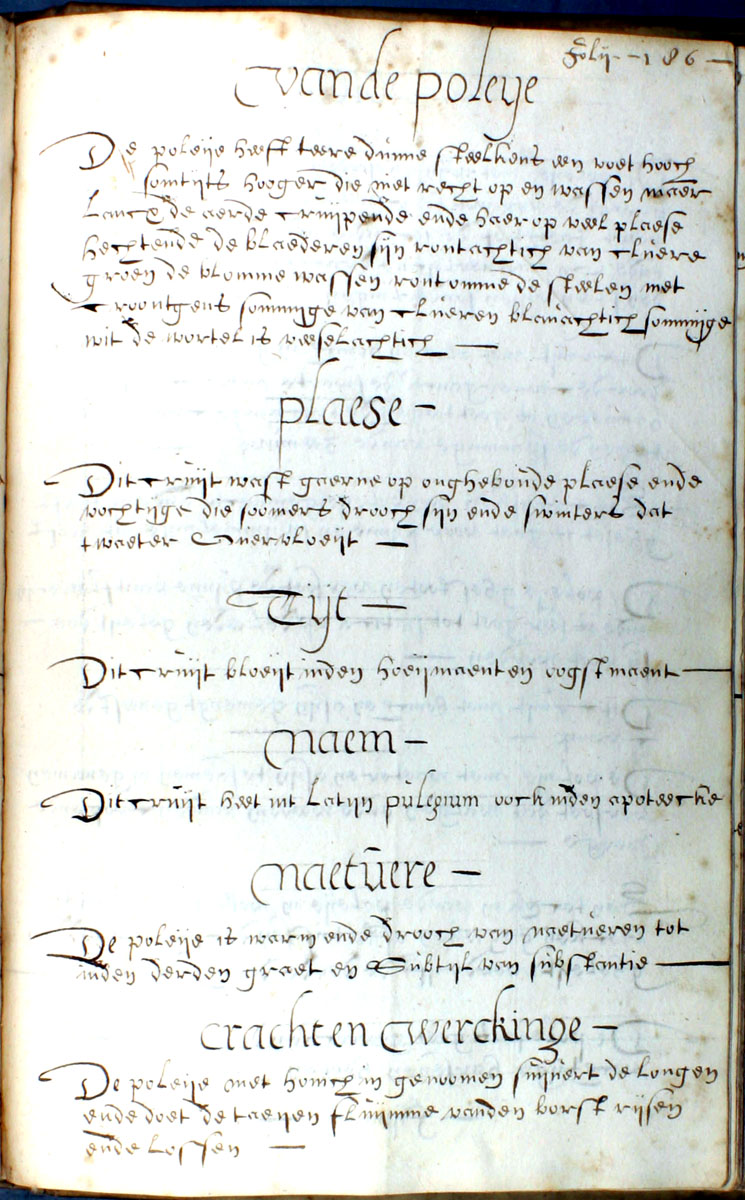 folij - 186 -
vande poleije
De poleije heeft teere dunne steelkens een voet hooch
somtijts hooger die niet recht op en wassen maer
lancx de aerde cruijpende ende haer op veel plaese
hechtende de blaederen sijn rontachtich van cluere
groen de blomme wassen rontomme de steelen met
croontgens sommige van clueren blauachtich sommijge
wit de wortel is veeselachtich —
plaese –
Dit cruijt wast gaerne op ongheboude plaese ende
vochtijge die soomers drooch sijn ende swinters dat
twaeter overvloeijt —
Tijt —
Dit cruijt bloeijt inden hoeijmaent en oogstmaent —
Naem –
Dit cruijt heet int Latijn pulegium oock inden apoteecke
Naetuere –
De poleije is warm ende drooch van naetueren tot
inden derden graet en Subtijl van substantie —
Crachten werckinge –
De poleije met honich in genoomen suijvert de longen
ende doet de taeijen fluijmme vanden borst rijsen
ende lossen —